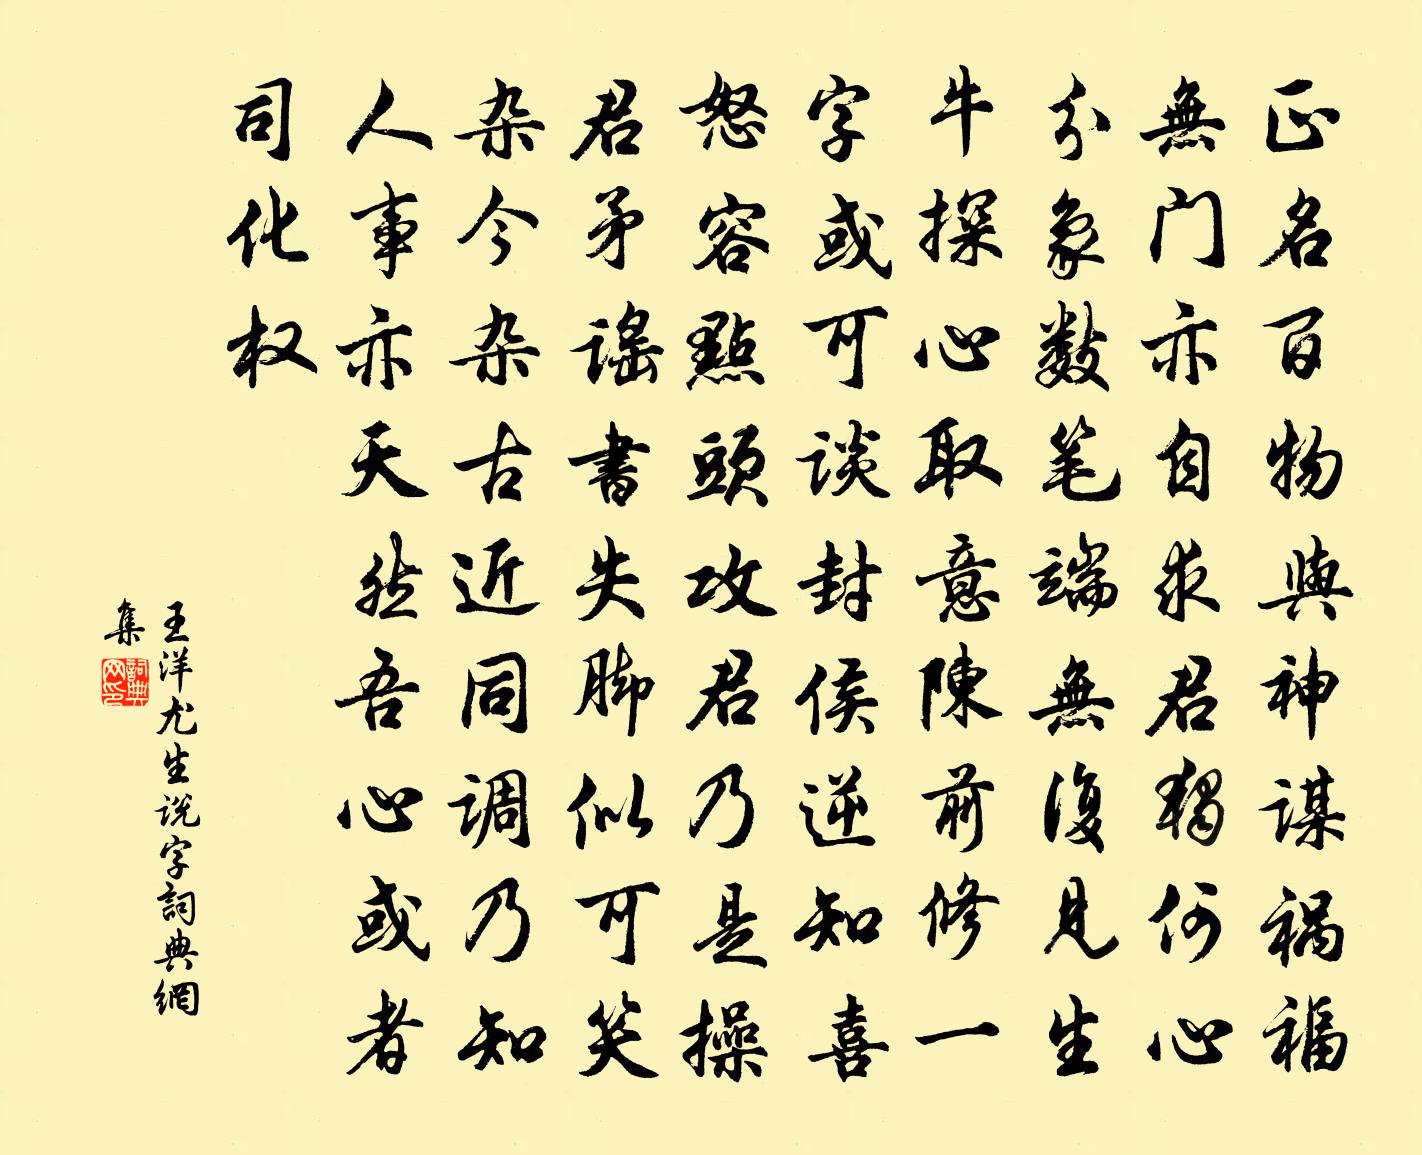 正名百物與神谋祸福
無门亦自求君獨何心
分象數笔端無復見生
牛探心取意陳前修一
字或可谈封侯逆知喜
怒容點頭攻君乃是操
君矛謠書失脚似可笑
杂今杂古近同调乃知
人事亦天然吾心或者
司化权
王洋尤生说字詞典網
集
詞典网印